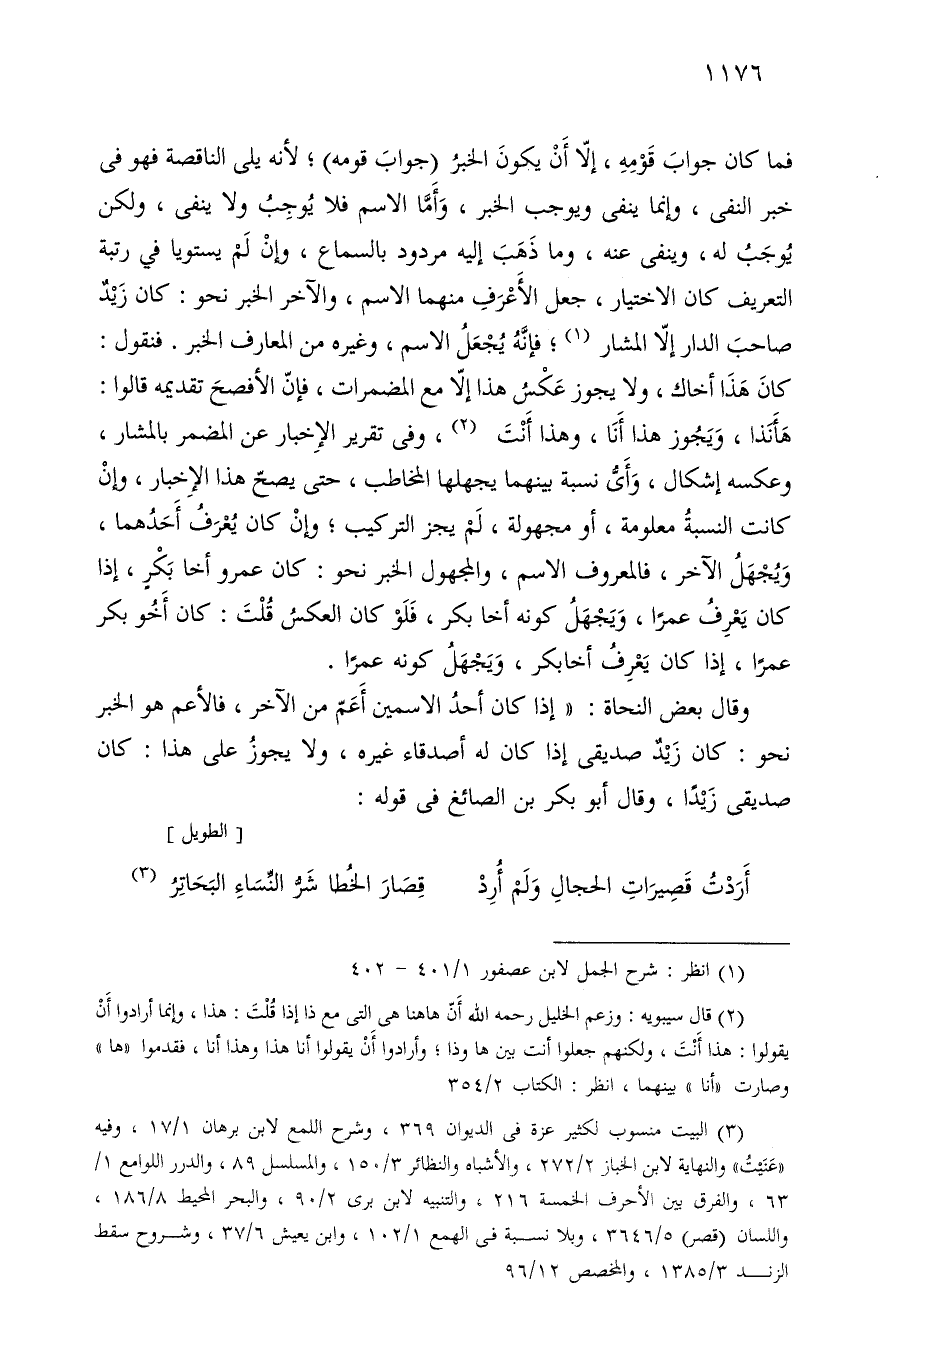 ١١٧٦
فما كان جوابَ قَوْمِهِ ، إلّا أَنْ يكونَ الخبرُ (جوابَ قومه) ؛ لأنه يلى الناقصة فهو فى
خبر النفى ، وإنما ينفى ويوجب الخبر ، وَأَمَّا الاسم فلا يُوجِبُ ولا ينفى ، ولكن
يُوجَبُ له ، وينفى عنه ، وما ذَهَبَ إليه مردود بالسماع ، وإنْ لَمْ يستويا في رتبة
التعريف كان الاختيار ، جعل الأَعْرَفِ منهما الاسم ، والآخر الخبر نحو : كان زَيْدٌ
صاحبَ الدار إلّا المشار (١) ؛ فإنَّهُ يُجْعَلُ الاسم ، وغيره من المعارف الخبر . فنقول :
كانَ هَذَا أخاك ، ولا يجوز عَكْسُ هذا إلّا مع المضمرات ، فإنّ الأفصحَ تقديمه قالوا :
هَأَنَذا ، وَيَجُوز هذا أَنَا ، وهذا أَنْتَ (٢) ، وفى تقرير الإخبار عن المضمر بالمشار ،
وعكسه إشكال ، وَأَىُّ نسبة بينهما يجهلها المخاطب ، حتى يصحّ هذا الإخبار ، وإنْ
كانت النسبةُ معلومة ، أو مجهولة ، لَمْ يجز التركيب ؛ وإنْ كان يُعْرَفُ أَحَدُهما ،
وَيُجْهَلُ الآخر ، فالمعروف الاسم ، والمجهول الخبر نحو : كان عمرو أخا بَكْرٍ ، إذا
كان يَعْرِفُ عمرًا ، وَيَجْهَلُ كونه أخا بكر ، فَلَوْ كان العكسُ قُلْتَ : كان أَخُو بكر
عمرًا ، إذا كان يَعْرِفُ أخابكر ، وَيَجْهَلُ كونه عمرًا .
وقال بعض النحاة : « إذا كان أحدُ الاسمين أَعَمّ من الآخر ، فالأعم هو الخبر
نحو : كان زَيْدٌ صديقى إذا كان له أصدقاء غيره ، ولا يجوزُ على هذا : كان
صديقى زَيْدًا ، وقال أبو بكر بن الصائغ فى قوله :
[ الطويل ]
أَرَدْتُ قَصِيرَاتِ الحجالِ وَلَمْ أُرِدْ قِصَارَ الخُطا شَرُّ النِّسَاءِ البَحَاتِرُ (٣)
(١) انظر : شرح الجمل لابن عصفور ٤٠١/١ – ٤٠٢
(٢) قال سيبويه : وزعم الخليل رحمه الله أنّ هاهنا هى التى مع ذا إذا قُلْتَ : هذا ، وإنما أرادوا أَنْ
يقولوا : هذا أَنْتَ ، ولكنهم جعلوا أنت بين ها وذا ؛ وأرادوا أَنْ يقولوا أنا هذا وهذا أنا ، فقدموا «ها »
وصارت «أنا » بينهما ، انظر : الكتاب ٣٥٤/٢
(٣) البيت منسوب لكثير عزة فى الديوان ٣٦٩ ، وشرح اللمع لابن برهان ١٧/١ ، وفيه
«عَنَيْتُ» والنهاية لابن الخباز ٢٧٢/٢ ، والأشباه والنظائر ١٥٠/٣ ، والمسلسل ٨٩ ، والدرر اللوامع ١/
٦٣ ، والفرق بين الأحرف الخمسة ٢١٦ ، والتنبيه لابن برى ٩٠/٢ ، والبحر المحيط ١٨٦/٨ ،
واللسان (قصر) ٣٦٤٦/٥ ، وبلا نسبة فى الهمع ١٠٢/١ ، وابن يعيش ٣٧/٦ ، وشروح سقط
الزند ١٣٨٥/٣ ، والمخصص ٩٦/١٢